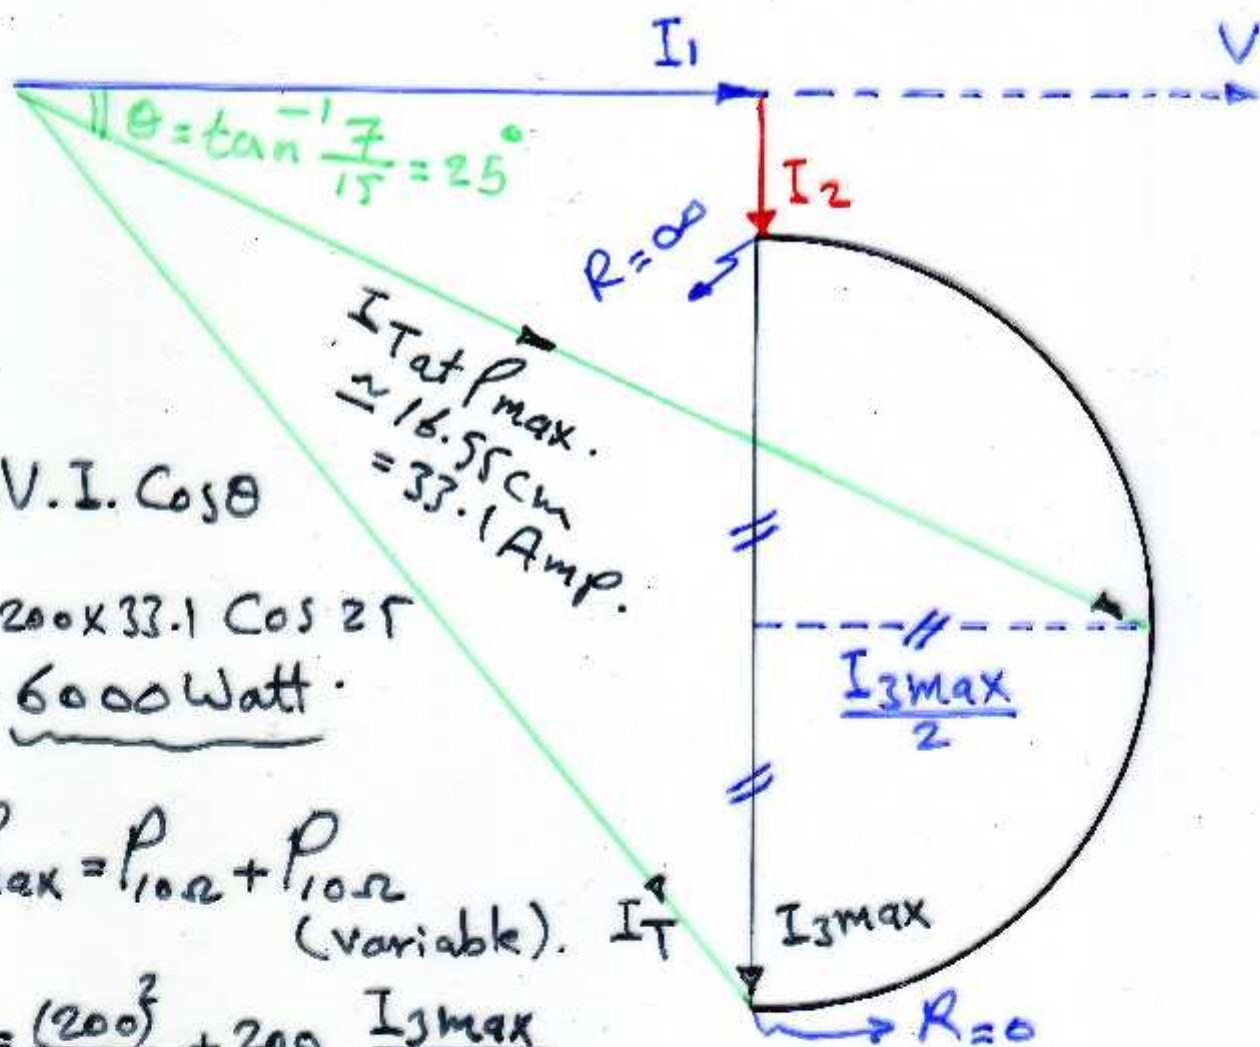 I₁
V
θ = tan⁻¹ 7/15 = 25°
I₂
R=∞
I_T at P_max.
≃ 16.55 cm
= 33.1 Amp.
V.I. Cosθ
200 x 33.1 Cos 25
6000 Watt.
I₃max/2
ax = P₁₀Ω + P₁₀Ω
(variable).
I_T
I₃max
= (200)² + 200 I₃max
R=0